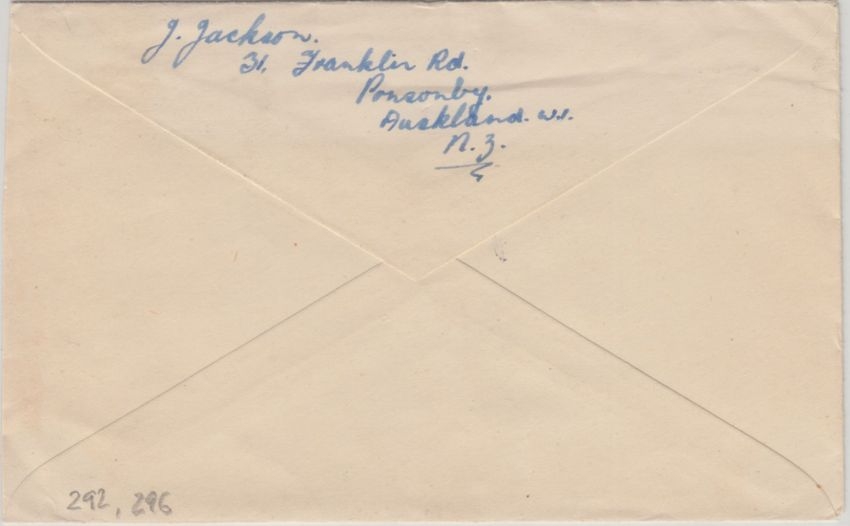 J. Jackson.
31, Franklin Rd.
Ponsonby.
Auckland. W.1.
N.Z.
292, 296